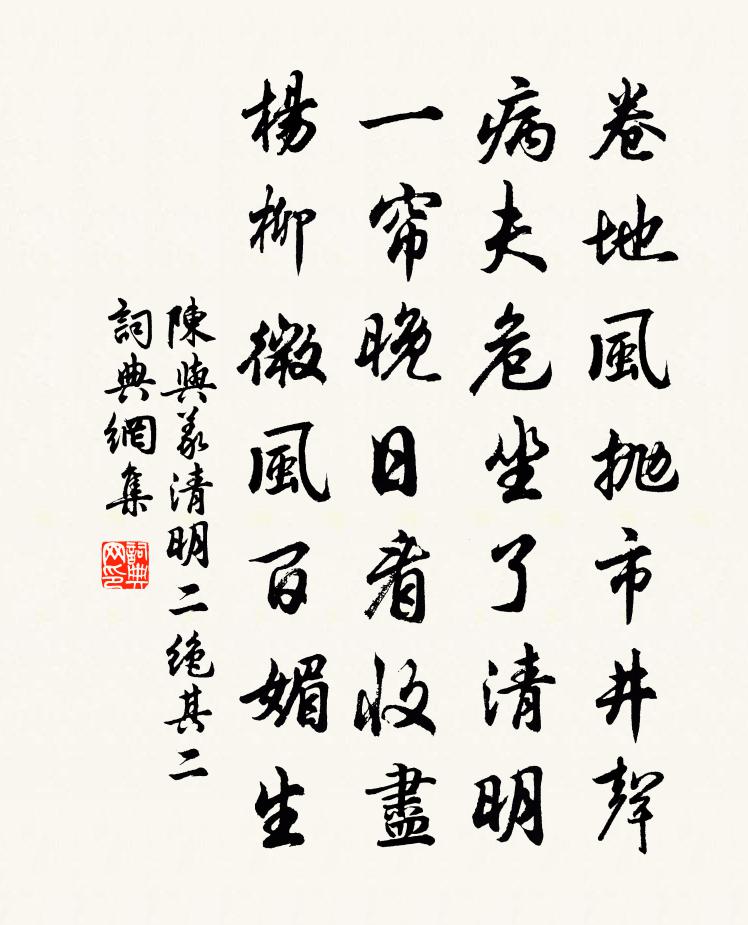 卷地風拋市井聲
病夫危坐了清明
一帘晚日看收盡
楊柳微風百媚生
陳與義清明二絕其二
詞典網集
詞典網印